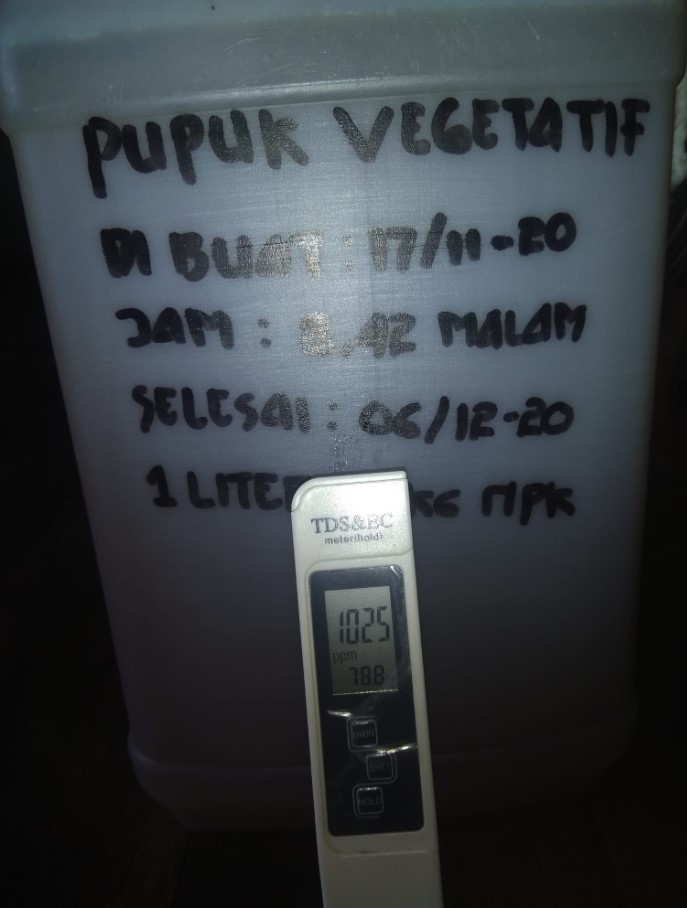 PUPUK VEGETATIF
DI BUAT : 17/11-20
JAM : 8.42 MALAM
SELESAI : 06/12-20
1 LITER KG MPK
TDS&EC
meter(hold)
1025
ppm
788
HOLD